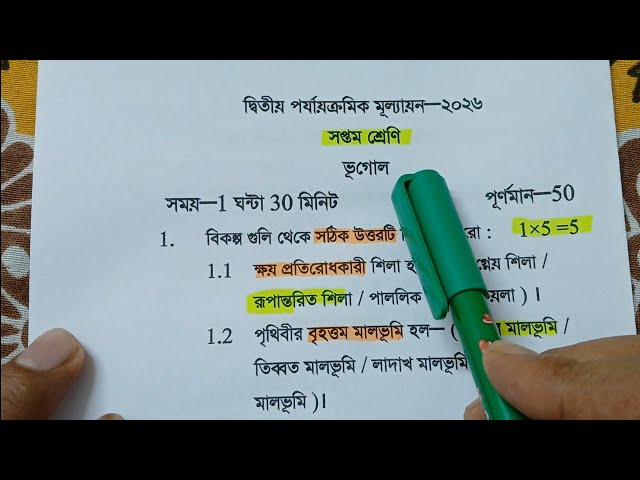 দ্বিতীয় পর্যায়ক্রমিক মূল্যায়ন—২০২৬
সপ্তম শ্রেণি
ভূগোল
সময়—1 ঘন্টা 30 মিনিট পূর্ণমান—50
1. বিকল্প গুলি থেকে সঠিক উত্তরটি : 1×5 =5
1.1 ক্ষয় প্রতিরোধকারী শিলা শিলা /
রূপান্তরিত শিলা / পাললিক ) ।
1.2 পৃথিবীর বৃহত্তম মালভূমি হল— ( মালভূমি /
তিব্বত মালভূমি / লাদাখ মালভূমি
মালভূমি )।